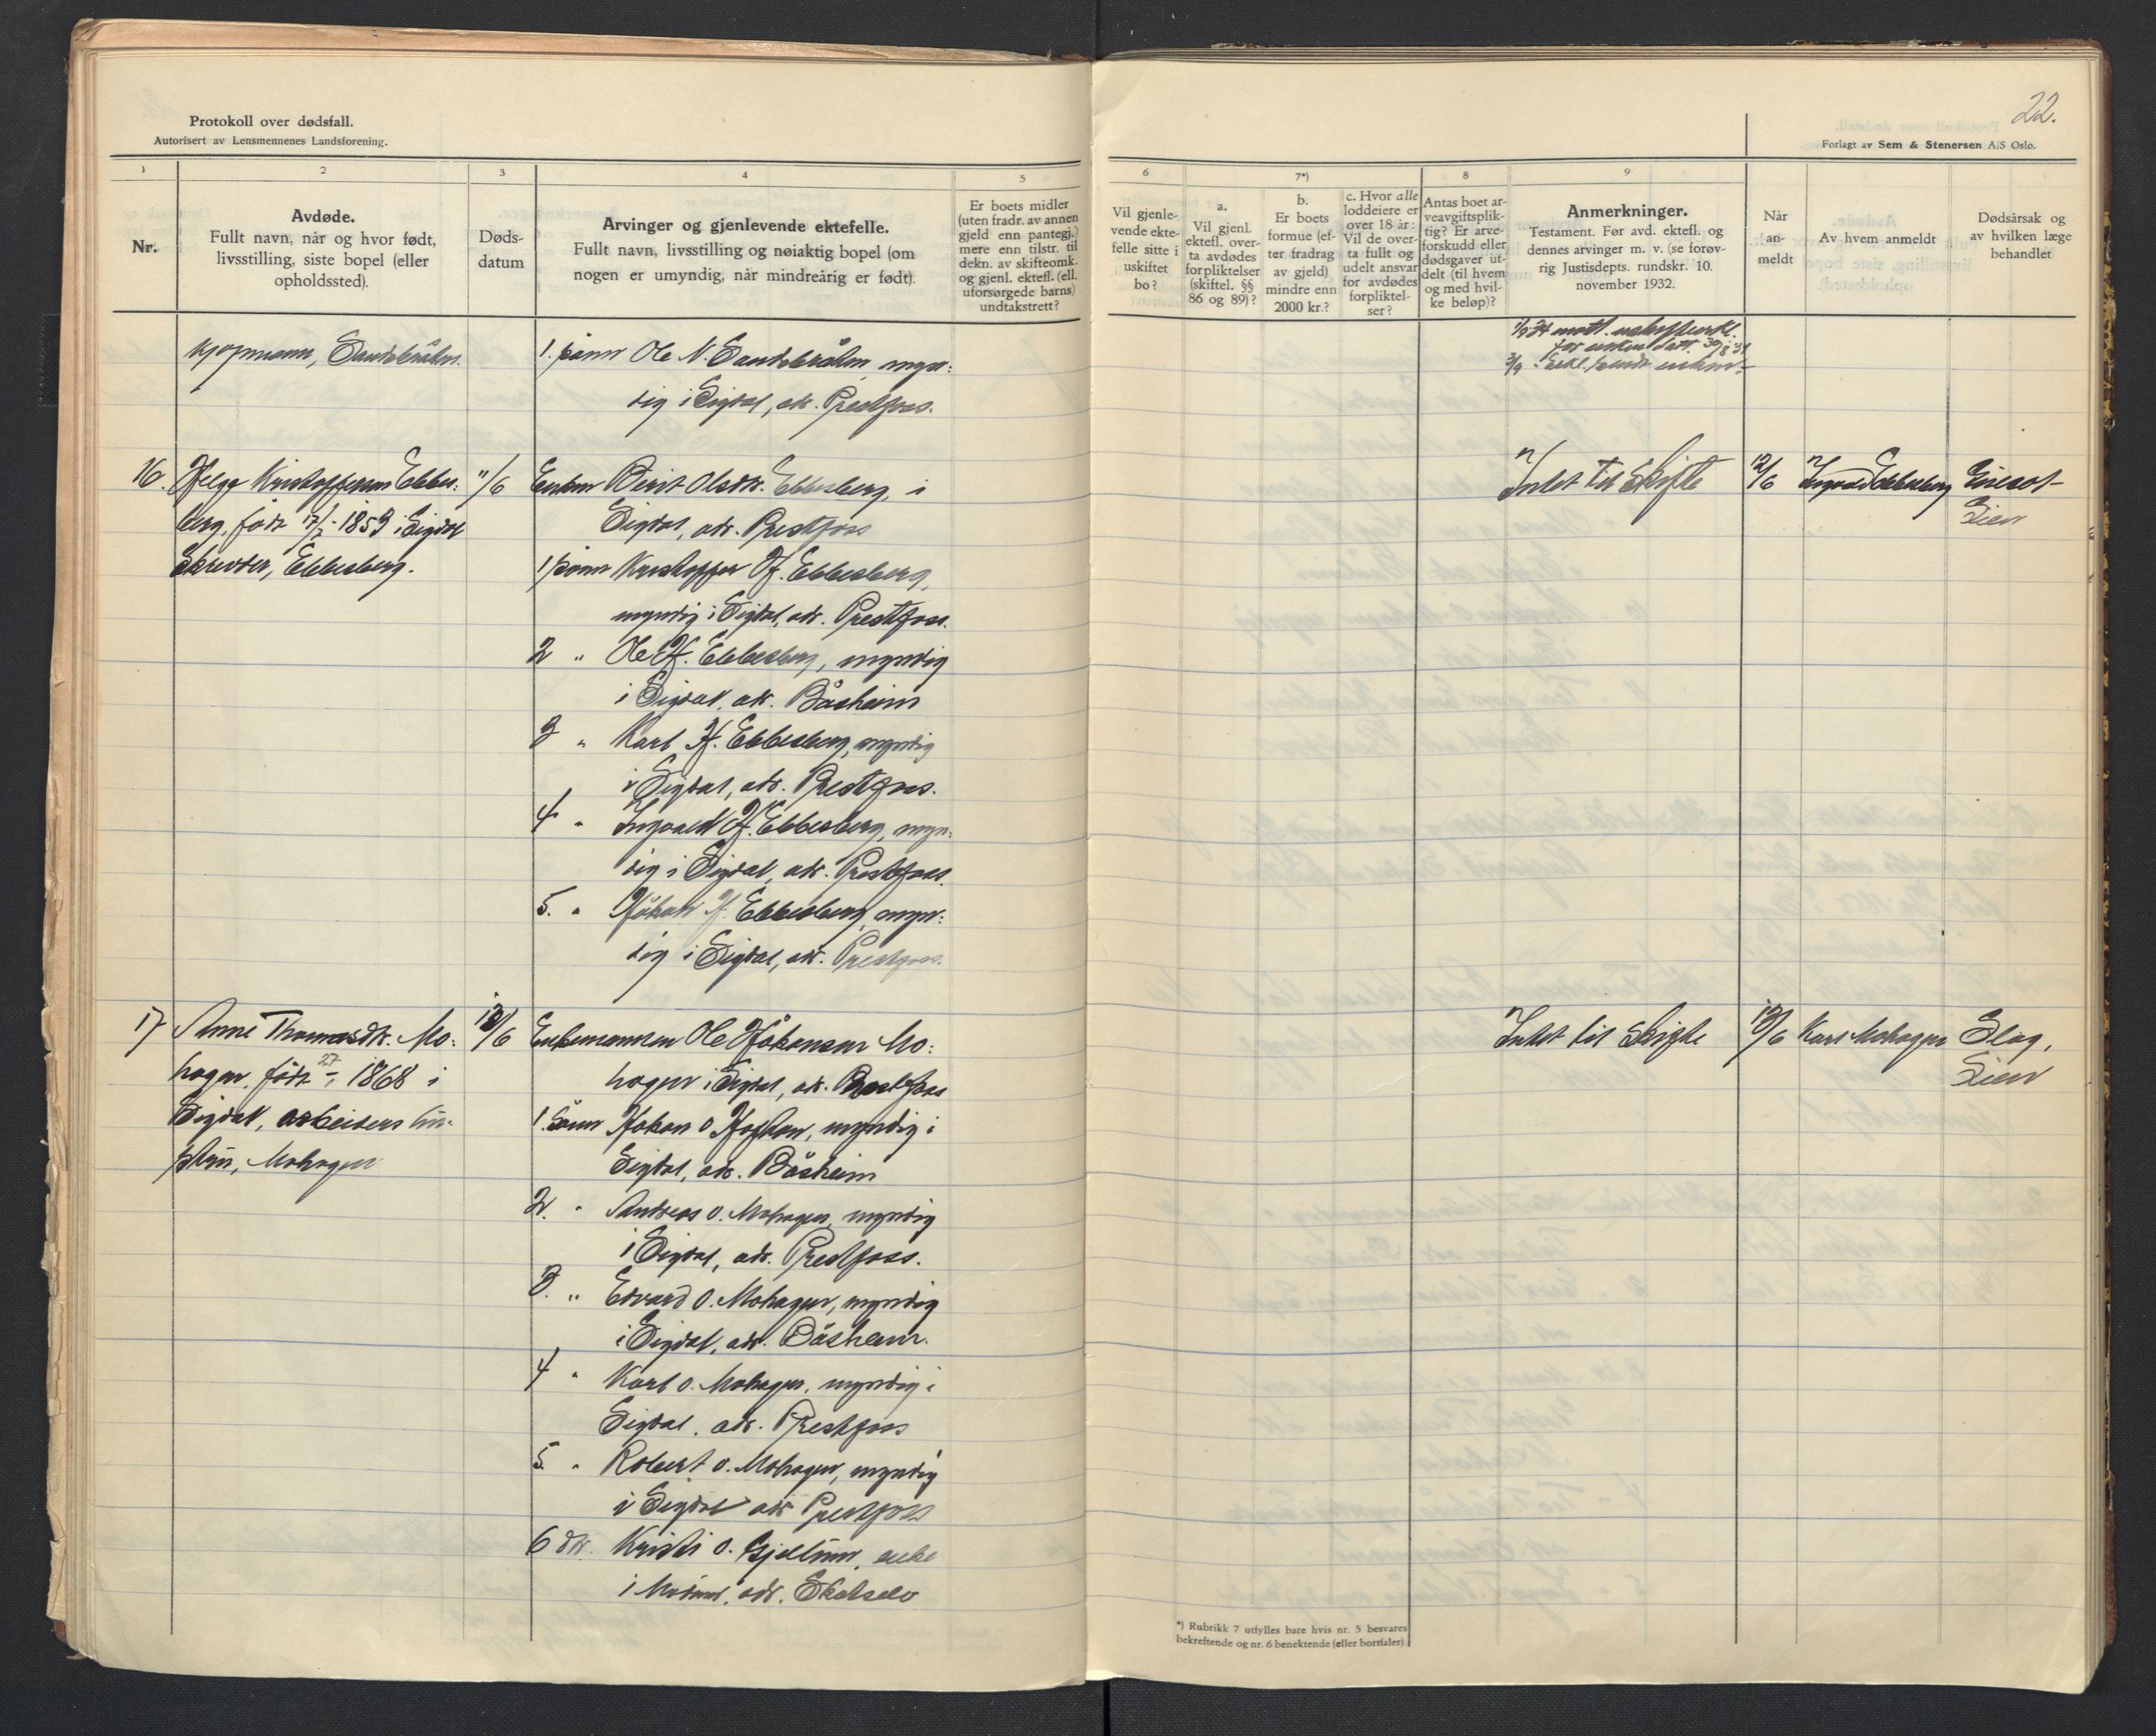 Protokoll over dødsfall.
Autorisert av Lensmennenes Landsforening.
1
2
3
4
5
Nr.
Avdøde.
Fullt navn, når og hvor født,
livsstilling, siste bopel (eller
opholdssted).
Døds-
datum
Arvinger og gjenlevende ektefelle.
Fullt navn, livsstilling og nøiaktig bopel (om
nogen er umyndig, når mindreårig er født).
Er boets midler
(uten fradr. av annen
gjeld enn pantegj.)
mere enn tilstr. til
dekn. av skifteomk.
og gjenl. ektefl. (ell.
uforsørgede barns)
undtakstrett?
Sandsbråten.
1. sønn Ole N. Sandsbråten, myn-
dig i Sigdal, adr. Prestfoss.
16. Helge Kristoffersen Ebbes-
berg, født 17/2 1859 i Sigdal
Skredder, Ebbesberg.
11/6
Enken Berit Olsdtr. Ebbesberg, i
Sigdal, adr. Prestfoss
1 sønn Kristoffer H. Ebbesberg,
myndig i Sigdal, adr. Prestfoss.
2 " Ole H. Ebbesberg, myndig
i Sigdal, adr. Båsheim
3 " Karl H. Ebbesberg, myndig
i Sigdal, adr. Prestfoss.
4 " Ingvald H. Ebbesberg, myn-
dig i Sigdal, adr. Prestfoss.
5. " Håkon H. Ebbesberg, myn-
dig i Sigdal, adr. Prestfoss.
17 Anne Thomasdtr. Mo-
hagen, født 1868 i
Sigdal, arbeiders hu-
stru, Mohagen
/6
Enkemannen Ole Håkonsen Mo-
hagen i Sigdal, adr. Prestfoss
1. Sønn Håkon O. myndig i
Sigdal, adr. Båsheim
2. " Andreas O. Mohagen, myndig
i Sigdal, adr. Prestfoss.
3. " Edvard O. Mohagen, myndig
i Sigdal, adr. Båsheim.
4 " Karl O. Mohagen, myndig i
Sigdal, adr. Prestfoss
5. " Robert O. Mohagen, myndig
i Sigdal adr Prestfoss
6 dtr. Kristi O. enke
i Modum, adr. Skotselv
22.
Forlagt av Sem & Stenersen A/S Oslo.
6
7*)
8
9
Vil gjenle-
vende ekte-
felle sitte i
uskiftet
bo?
a.
Vil gjenl.
ektefl. over-
ta avdødes
forpliktelser
(skiftel. §§
86 og 89)?
b.
Er boets
formue (ef-
ter fradrag
av gjeld)
mindre enn
2000 kr.?
c. Hvor alle
loddeiere er
over 18 år:
Vil de over-
ta fullt og
udelt ansvar
for avdødes
forpliktel-
ser?
Antas boet ar-
veavgiftsplik-
tig? Er arve-
forskudd eller
dødsgaver ut-
delt (til hvem
og med hvil-
ke beløp)?
Anmerkninger.
Testament. Før avd. ektefl. og
dennes arvinger m. v. (se forøv-
rig Justisdepts. rundskr. 10.
november 1932.
Når
an-
meldt
Av hvem anmeldt
Dødsårsak og
av hvilken læge
behandlet
1/9 34 mott. uskifteerkl.
for enken datt. 30/8 34
3/9 Erkl. sendt
Intet til Skifte
12/6
Ingvald Ebbesberg
Lien
Intet til Skifte
/6
Karl Mohagen
Slag,
Lien
*) Rubrikk 7 utfylles bare hvis nr. 5 besvares
bekreftende og nr. 6 benektende (eller bortfaler)